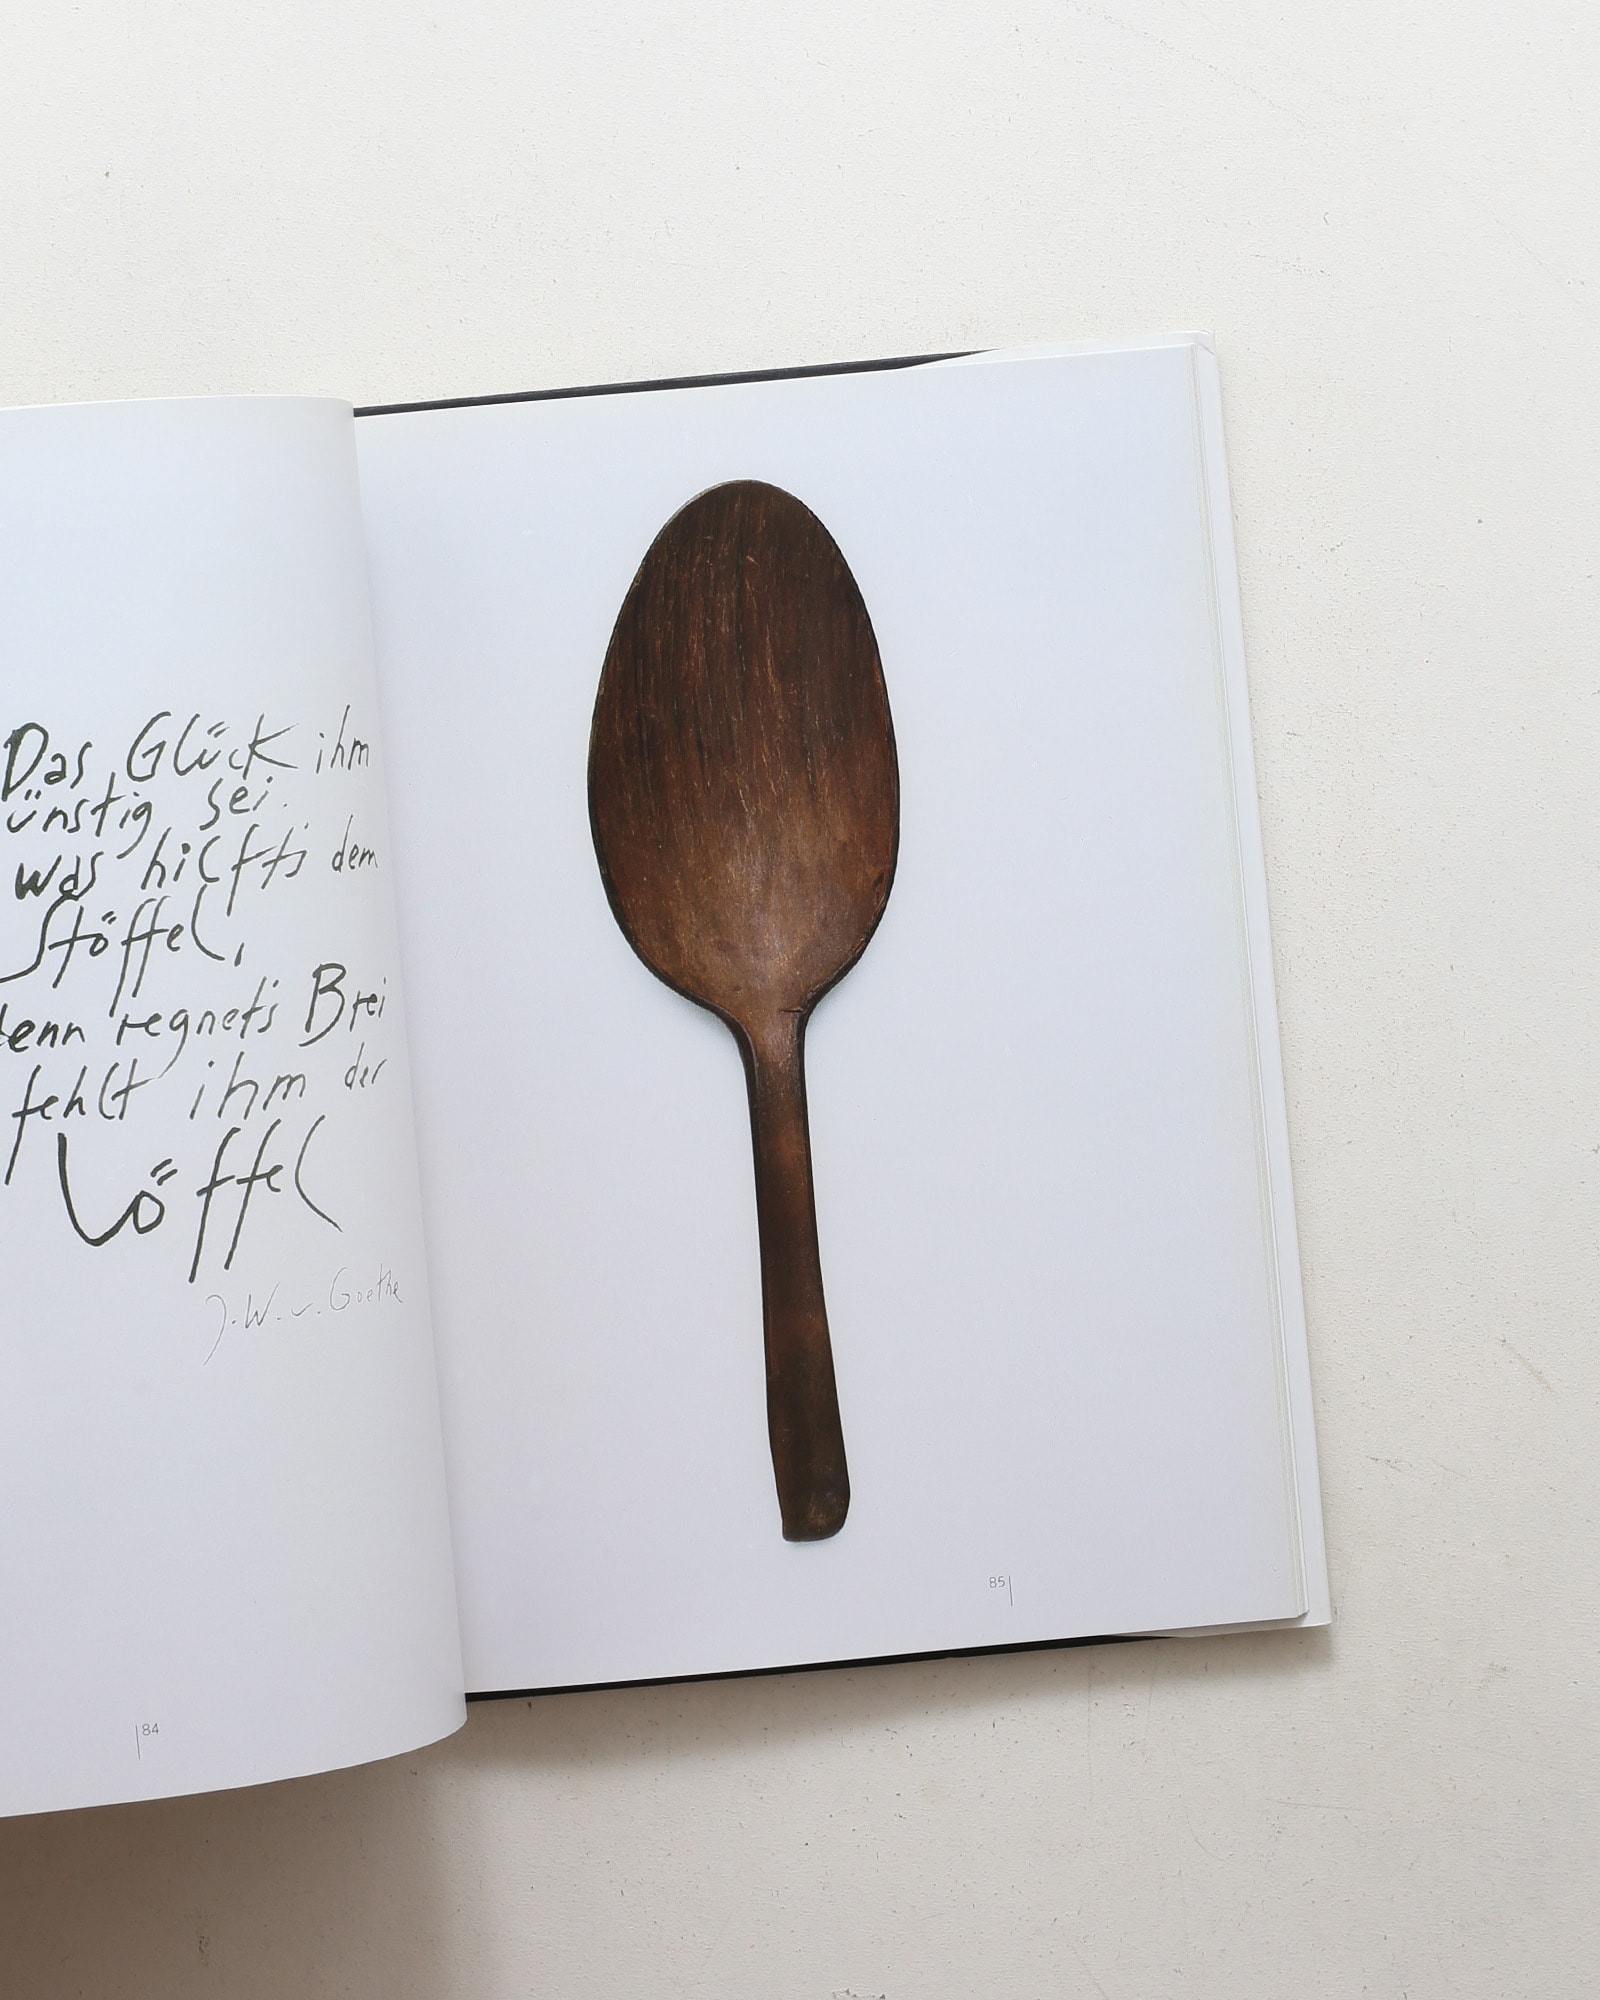 Das Glück ihm
ünstig sei.
was hilft's dem
Stöffel,
denn regnet's Brei
fehlt ihm der
Löffel
J.W.v.Goethe
84
85